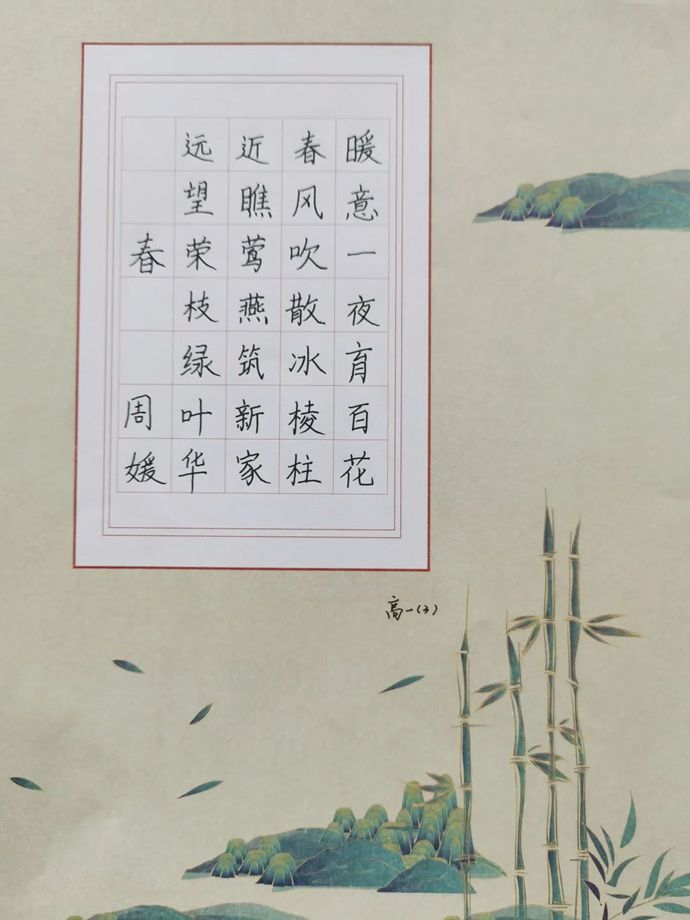 暖意一夜育百花
春风吹散冰棱柱
近瞧莺燕筑新家
远望荣枝绿叶华
春 周媛
高一(3)